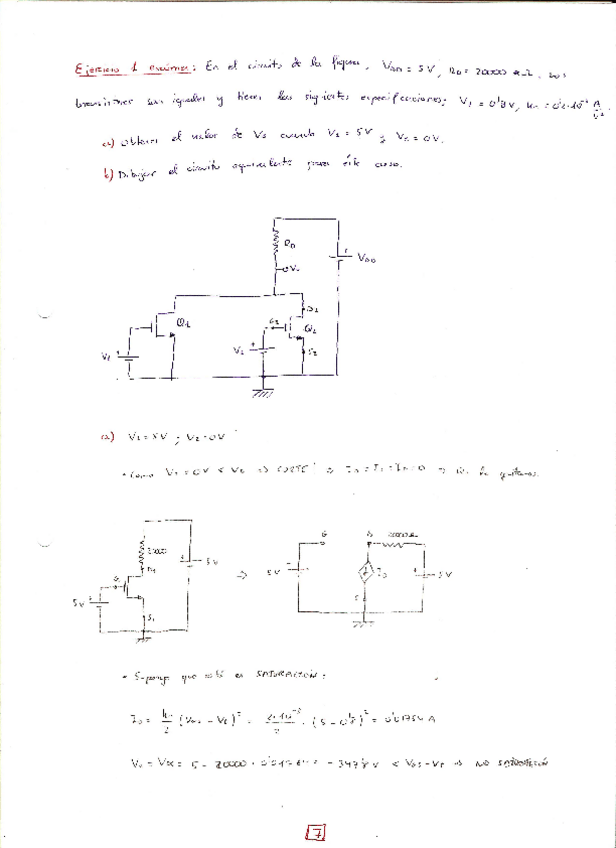 Ejercicio 1 examen: En el circuito de la figura, VDD = 5V, RD = 20000 Ω, los
transistores son iguales y tienen las siguientes especificaciones: VT = 0'8V, A/V²
a) Obtener el valor de Vo cuando V1 = 5V y V2 = 0V.
b) Dibujar el circuito equivalente para éste caso.
RD
VDD
Vo
D2
G2
Q1
Q2
V1
V2
S2
a) V1 = 5V ; V2 = 0V
• Como V2 = 0V < VT ⇒ CORTE ⇒
5V
G
D
5V
5V
ID
5V
S
• Supongo que está en SATURACIÓN:
ID = k/2 (VGS - VT)² = (5 - 0'8)² = 0'01764 A
Vo = VDS = 5 - 20000 · 0'01764 = -347'8 V < VGS - VT ⇒ NO SATURACIÓN
7